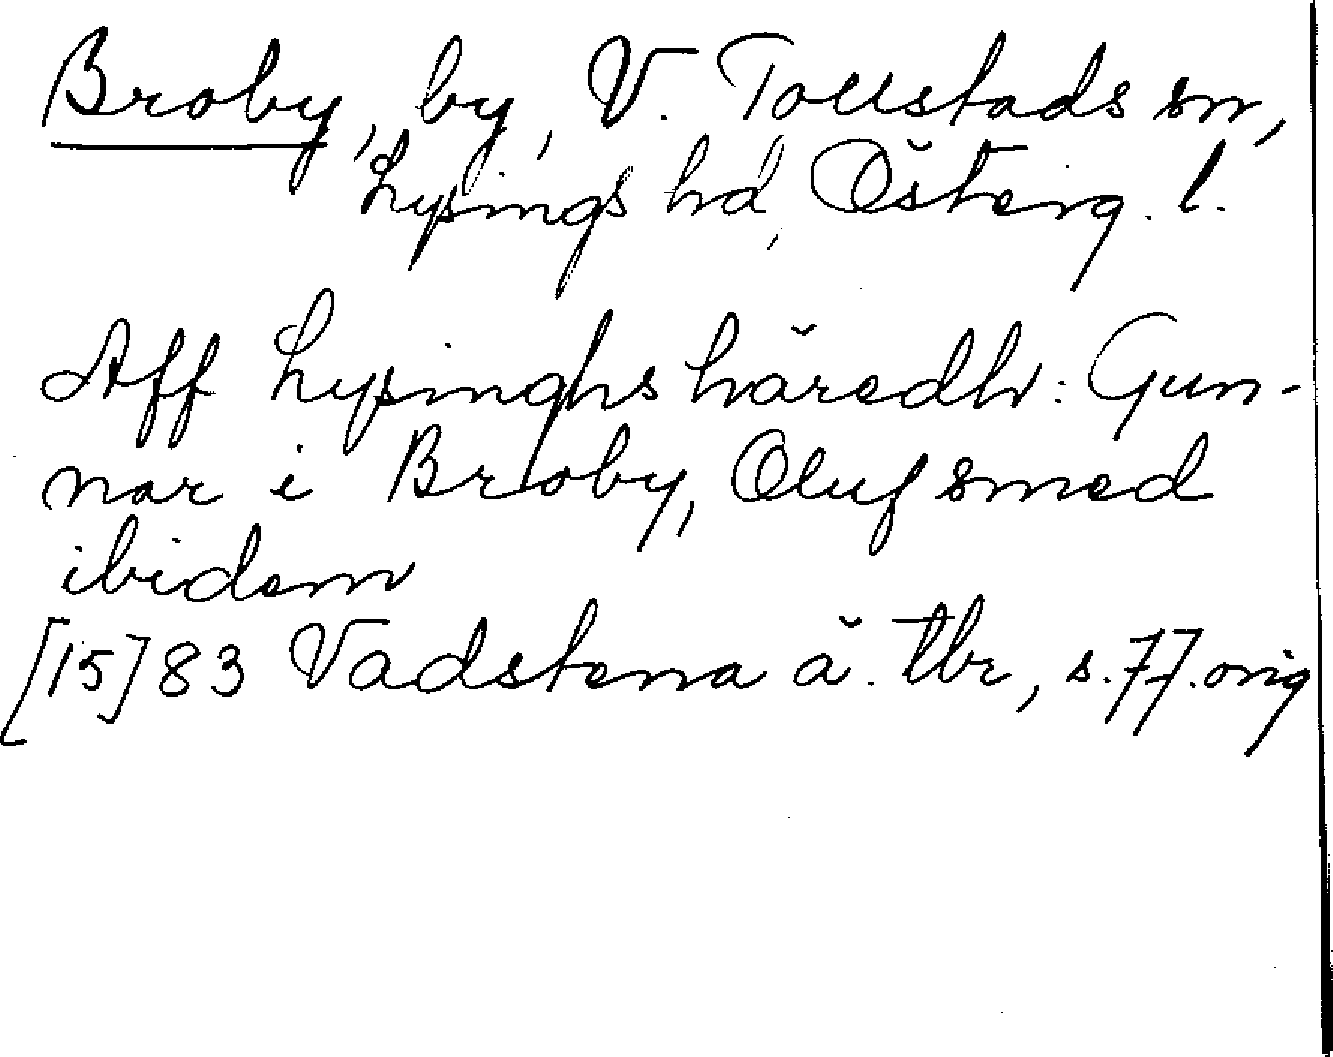 Broby, by, V. Tollstads sn,
Lysings hd, Österg. l.
Aff Lysinghs häredh: Gun-
nar i Broby, Oluf smed
ibidem
[15]83 Vadstena ä. tbr, s. 77. orig